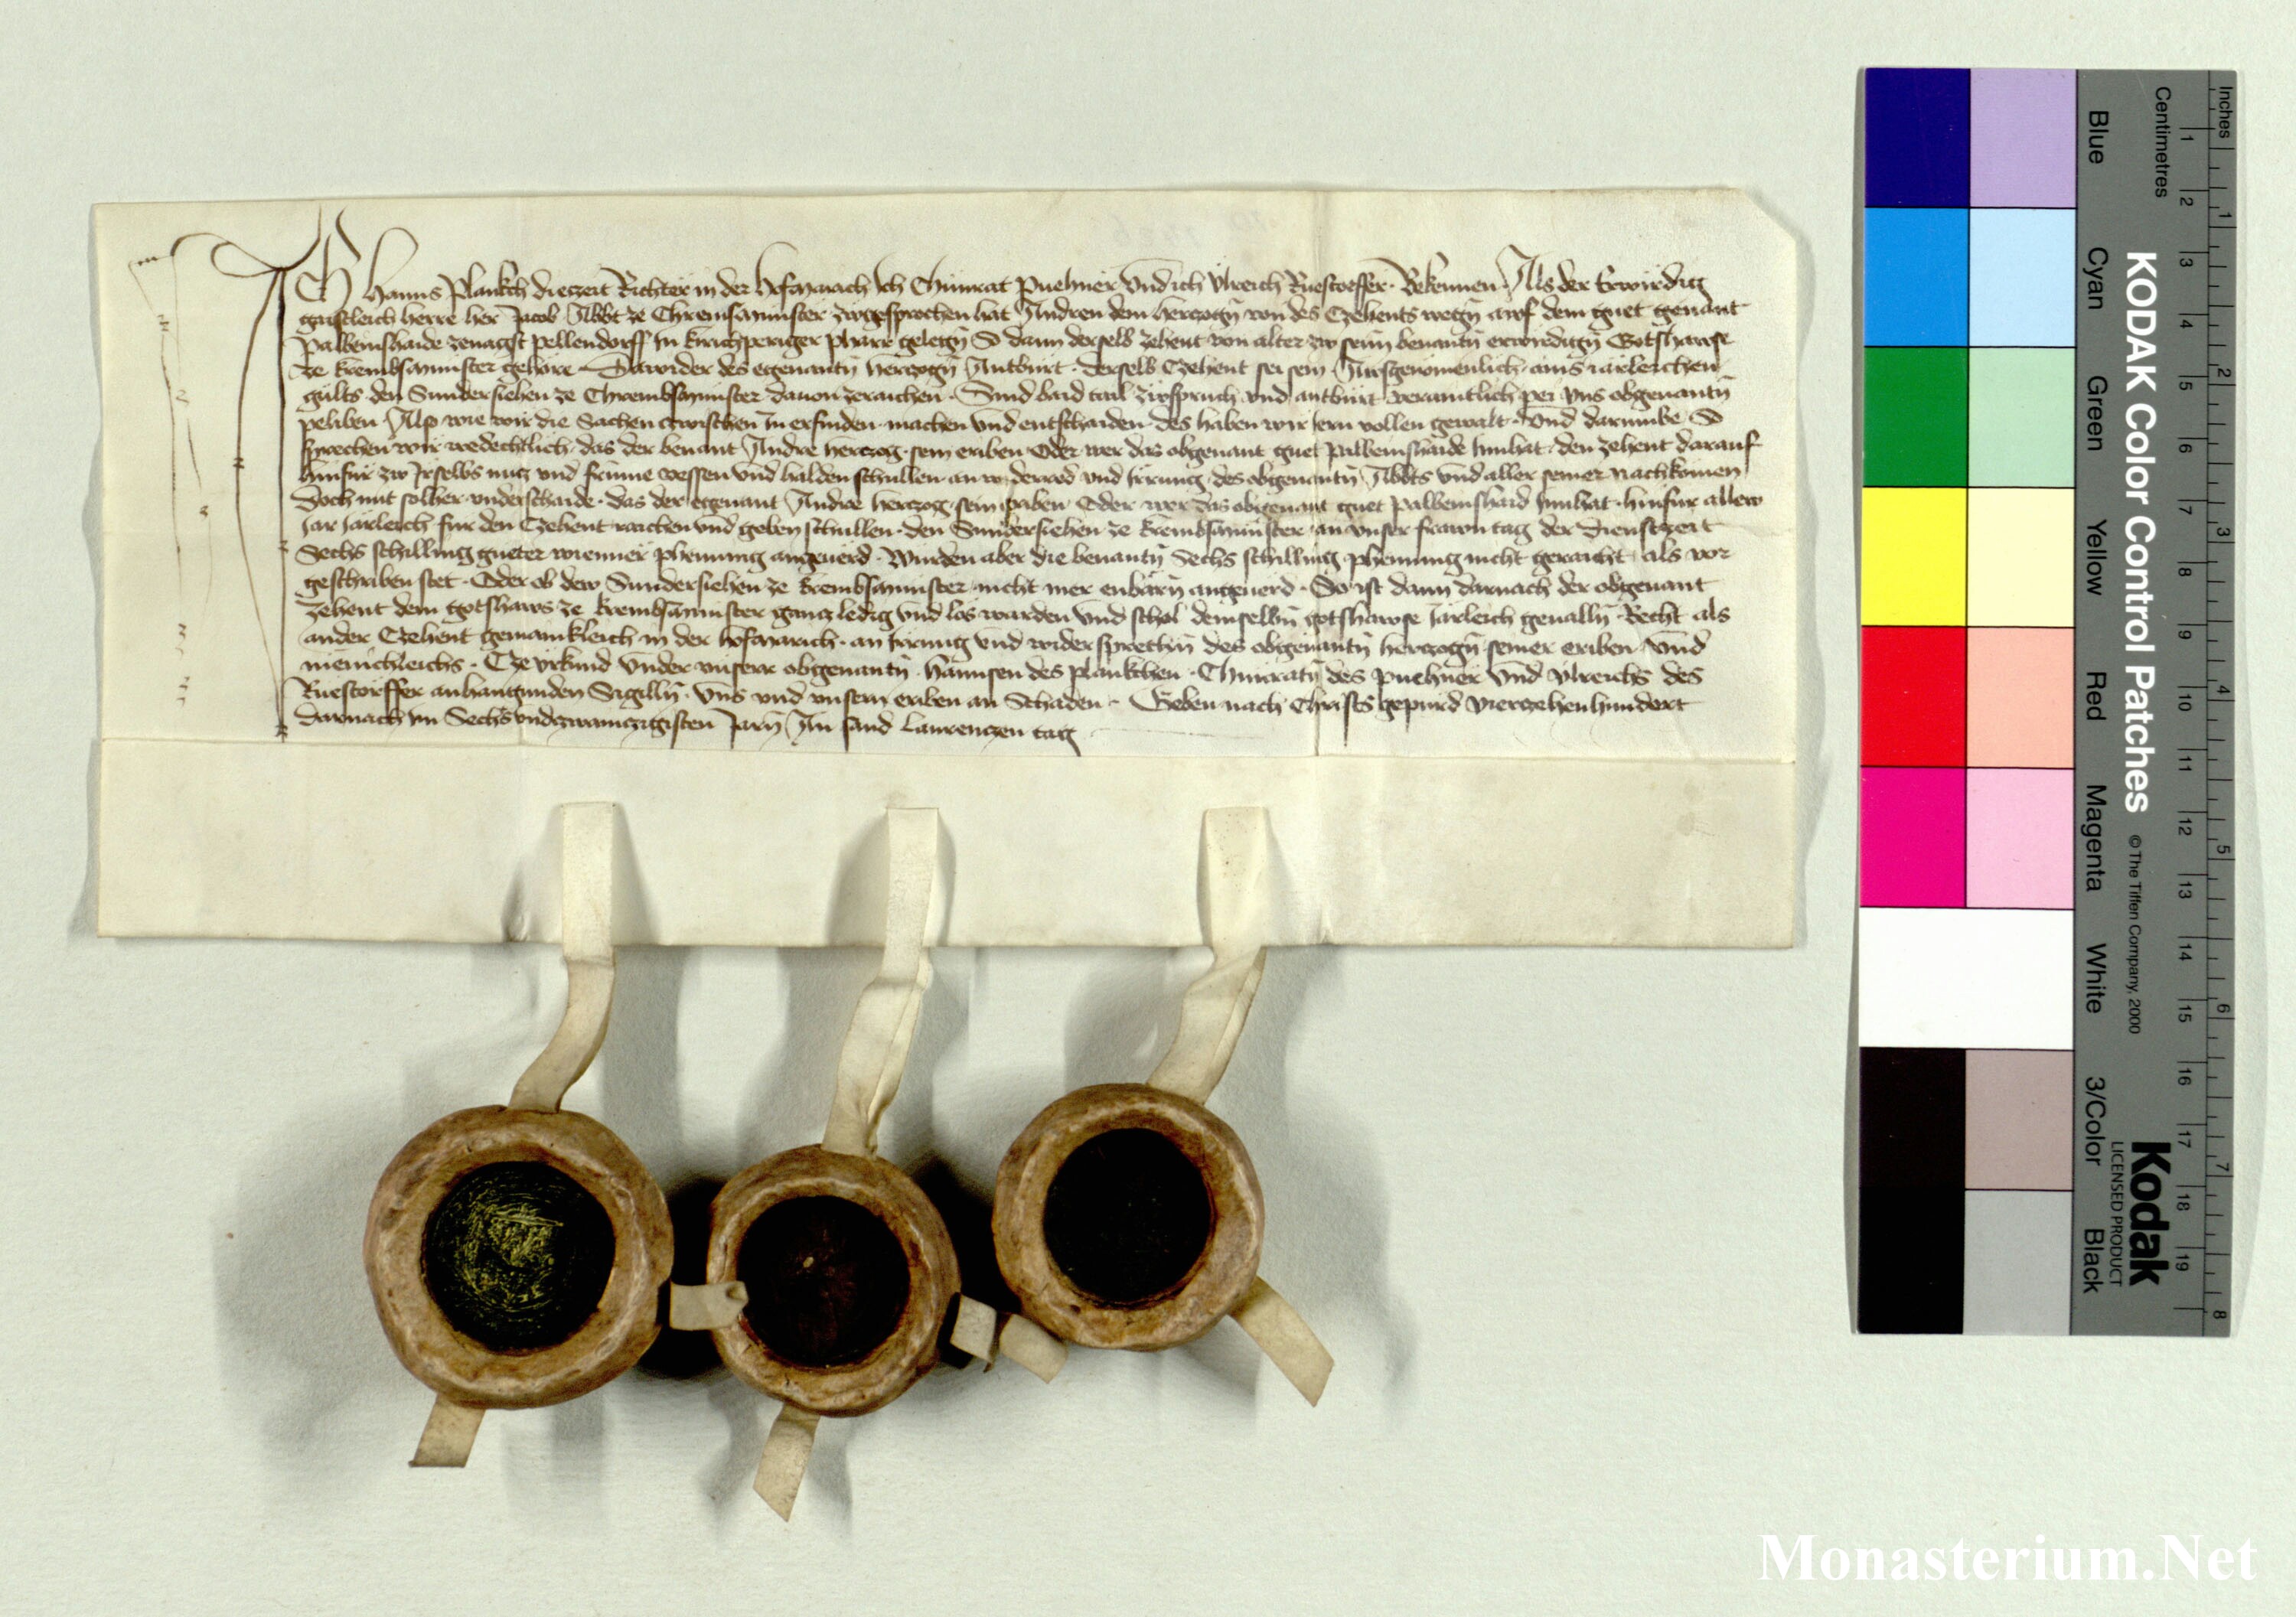 Ich Hanns Plankch dieczeit Richter in der hofmarich Ich Chunrat Puehner Vnd ich Vlreich Ruestorffer · Bekennen · Als der Erwirdig
geistleich herre her Jacob Abbt ze Chremsmunster zugesprochen hat Andren dem herczogn von des Czehents wegn awf dem guet genant
Palbeinshaide zenagst Pellendorff In kirichperiger pharr gelegn So dann derselb zehent von alter zw seinn benantn erwirdign Gotshawse
ze krembsmunster gehöre · Dawider des egenantn herczogn Antburt · derselb Czehent sei sein Awsgenomenlich ains iarleichen
gults den Sundersiehen ze Chrembsmunster dauon zeraichen · Sind baid tail zuspruch vnd antburt veraintlich per vns obgenantn
peliben Also wie wir die Sachen czwischen In erfinden · machen vnd entschaiden · des haben wir iern vollen gewalt · Vnd darumbe So
sprechen wir wedechtlich · das der benant Andre herczog · sein eriben Oder wer das obgenant guet Palbeinshaide Innhat · den zehent darauf
hinfur zw Irselbs nucz vnd frume vessen vnd halden schullen · an widerred vnd Irrung · des obgenantn Abbts vnd aller seiner nachkomen
Doch mit solher vnderschaide · das der egenant Andre herczog · sein eriben · Oder wer das obgenant guet Palbeinshaid Innhat · hinfur allew
Jar Jarleich fur den Czehent raichen vnd geben schullen · den Sundersiehen ze krembsmunster an vnser frawn tag der dienstzeit
Sechs schilling gueter wienner phenning angeuerd · Wurden aber die benantn Sechs schilling phenning nicht geraicht · als vor
geschriben stet · Oder ob dew Sundersiehen ze krembsmunster nicht mer enbarn angeuerd · So ist dann darnach der obgenant
zehent dem gotshaws ze krembsmunster gancz ledig vnd los warden Vnd schol demselbn gotshawse Jarleich geualln · Recht als
ander Czehent gemainkleich in der hofmarich · an Irrung vnd widersprechn des obgenantn herczogn seiner eriben · Vnd
menichleichs · Cze vrkund Vnder vnserr obgenantn · hannsen des plankchen · Chunratn des Puehner Vnd Vlreichs des
Ruestorffer anhangunden Sigilln · Vns vnd vnsern eriben an Schaden · Geben nach Christs gepurd Vierczehenhundert
darnach im Sechsvndczwainczigisten Jarn An sand Laurenczen tag
Inches
Centimetres
1 2 3 4 5 6 7 8
1 2 3 4 5 6 7 8 9 10 11 12 13 14 15 16 17 18 19
KODAK Color Control Patches
© The Tiffen Company, 2000
Kodak
LICENSED PRODUCT
Blue
Cyan
Green
Yellow
Red
Magenta
White
3/Color
Black
Monasterium.Net